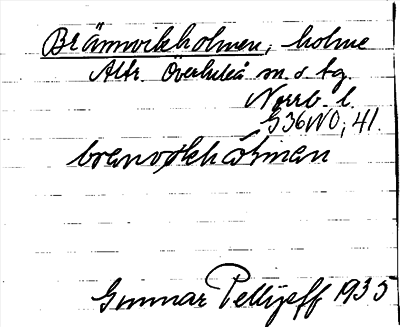 Brännvikholmen, holme
Altr. Överluleå sn. o. tg.
Norrb. l.
G36NO; 41.
brannvikhålman
Gunnar Pellijeff 1935